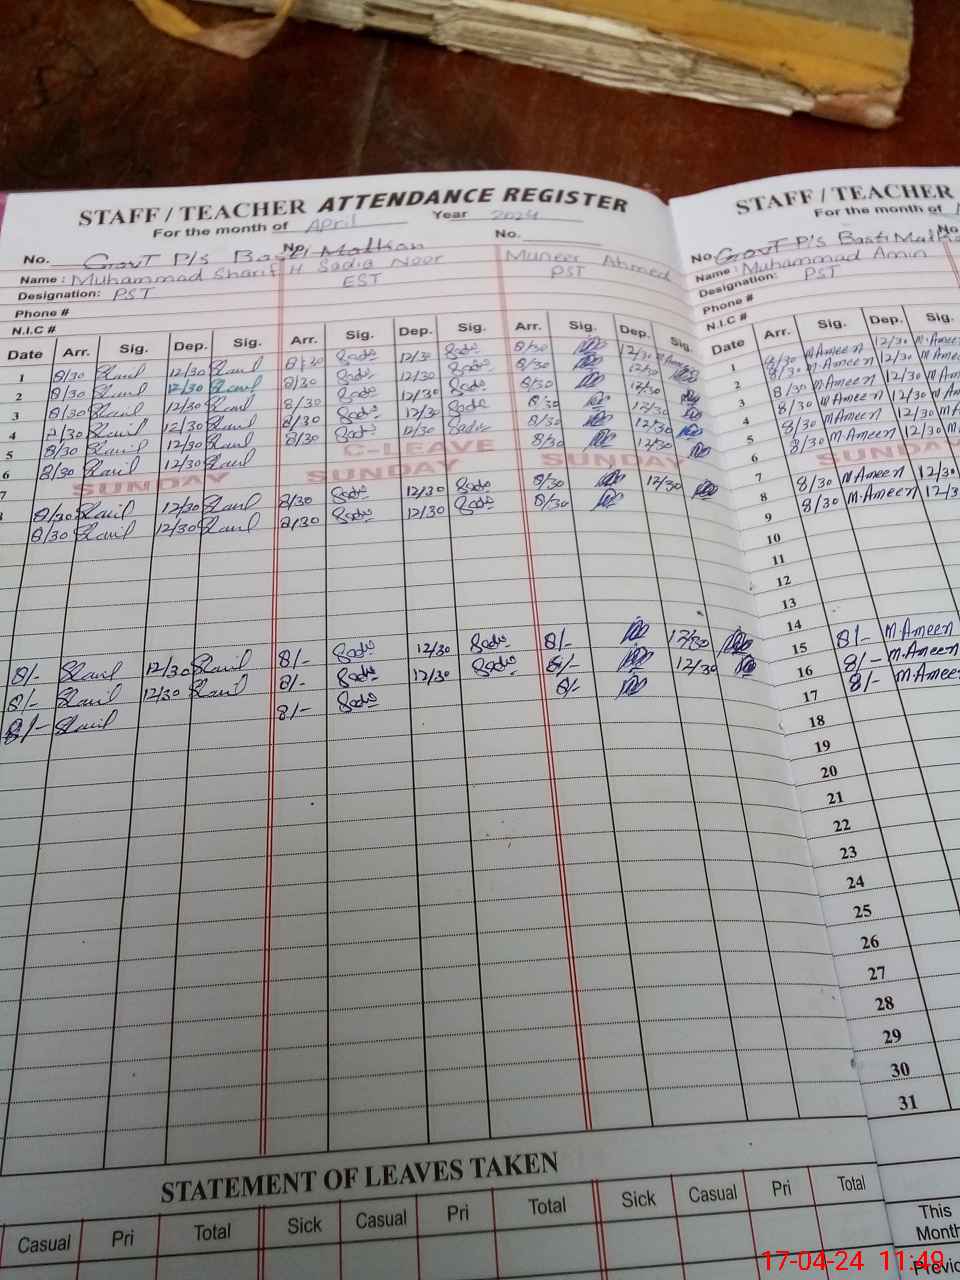 STAFF / TEACHER ATTENDANCE REGISTER
For the month of April Year 2024
No. Govt P/s Basti Malkan No. No.
Name : Muhammad Sharif H Sadia Noor Muneer Ahmed
Designation: PST EST PST
Phone #
N.I.C #
Date Arr. Sig. Dep. Sig. Arr. Sig. Dep. Sig. Arr. Sig. Dep. Sig.
1 8/30 12/30 8/30 Sadia 12/30 Sadia 8/30 12/30
2 8/30 12/30 8/30 Sadia 12/30 Sadia 8/30 12/30
3 8/30 12/30 8/30 Sadia 12/30 Sadia 8/30 12/30
4 8/30 12/30 8/30 Sadia 12/30 Sadia 8/30 12/30
5 8/30 12/30 8/30 Sadia 12/30 Sadia 8/30 12/30
6 8/30 12/30 C-LEAVE 8/30 12/30
7 SUNDAY SUNDAY SUNDAY
8/30 12/30 8/30 Sadia 12/30 Sadia 8/30 12/30
8/30 12/30 8/30 Sadia 12/30 Sadia 8/30
8/- 12/30 8/- Sadia 12/30 Sadia 8/- 12/30
8/- 12/30 8/- Sadia 12/30 Sadia 8/- 12/30
8/- 8/- Sadia 8/-
STATEMENT OF LEAVES TAKEN
Casual Pri Total Sick Casual Pri Total Sick Casual Pri Total
STAFF / TEACHER
For the month of
No. Govt P/s Basti No.
Name : Muhammad Amin
Designation: PST
Phone #
N.I.C #
Date Arr. Sig. Dep. Sig.
1 8/30 M.Ameen 12/30 M.Ameen
2 8/30 M.Ameen 12/30
3 8/30 M.Ameen 12/30
4 8/30 M.Ameen 12/30
5 8/30 M.Ameen 12/30
6 8/30 M.Ameen 12/30
7 SUNDAY
8 8/30 M.Ameen 12/30
9 8/30 M.Ameen 12/3
10
11
12
13
14
15 8/- M.Ameen
16 8/- M.Ameen
17 8/- M.Ameen
18
19
20
21
22
23
24
25
26
27
28
29
30
31
This
Month
Previo
17-04-24 11:49